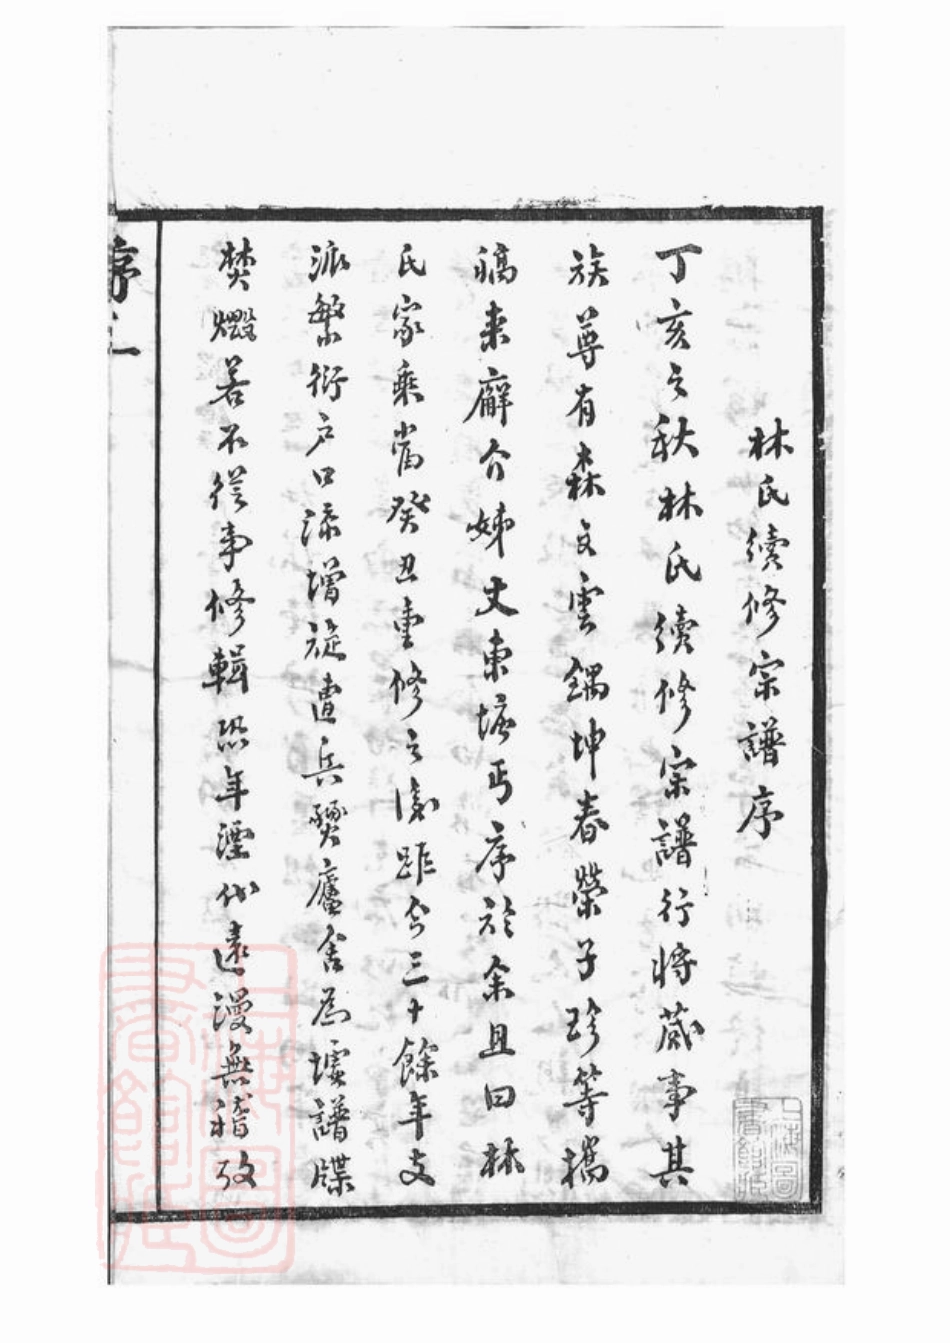 林氏續修宗譜序
丁亥之秋林氏續修宗譜行將蕆事其
族尊有森文雲錫坤春榮子珍等攜
稿來廨介姊丈東塘丐序於余且曰林
氏家乘當癸丑重修之後距今三十餘年支
派繁衍戶口添增旋遭兵燹廬舍為墟譜牒
焚燬若不從事修輯恐年湮代遠漫無稽攷
序
上海圖書館藏